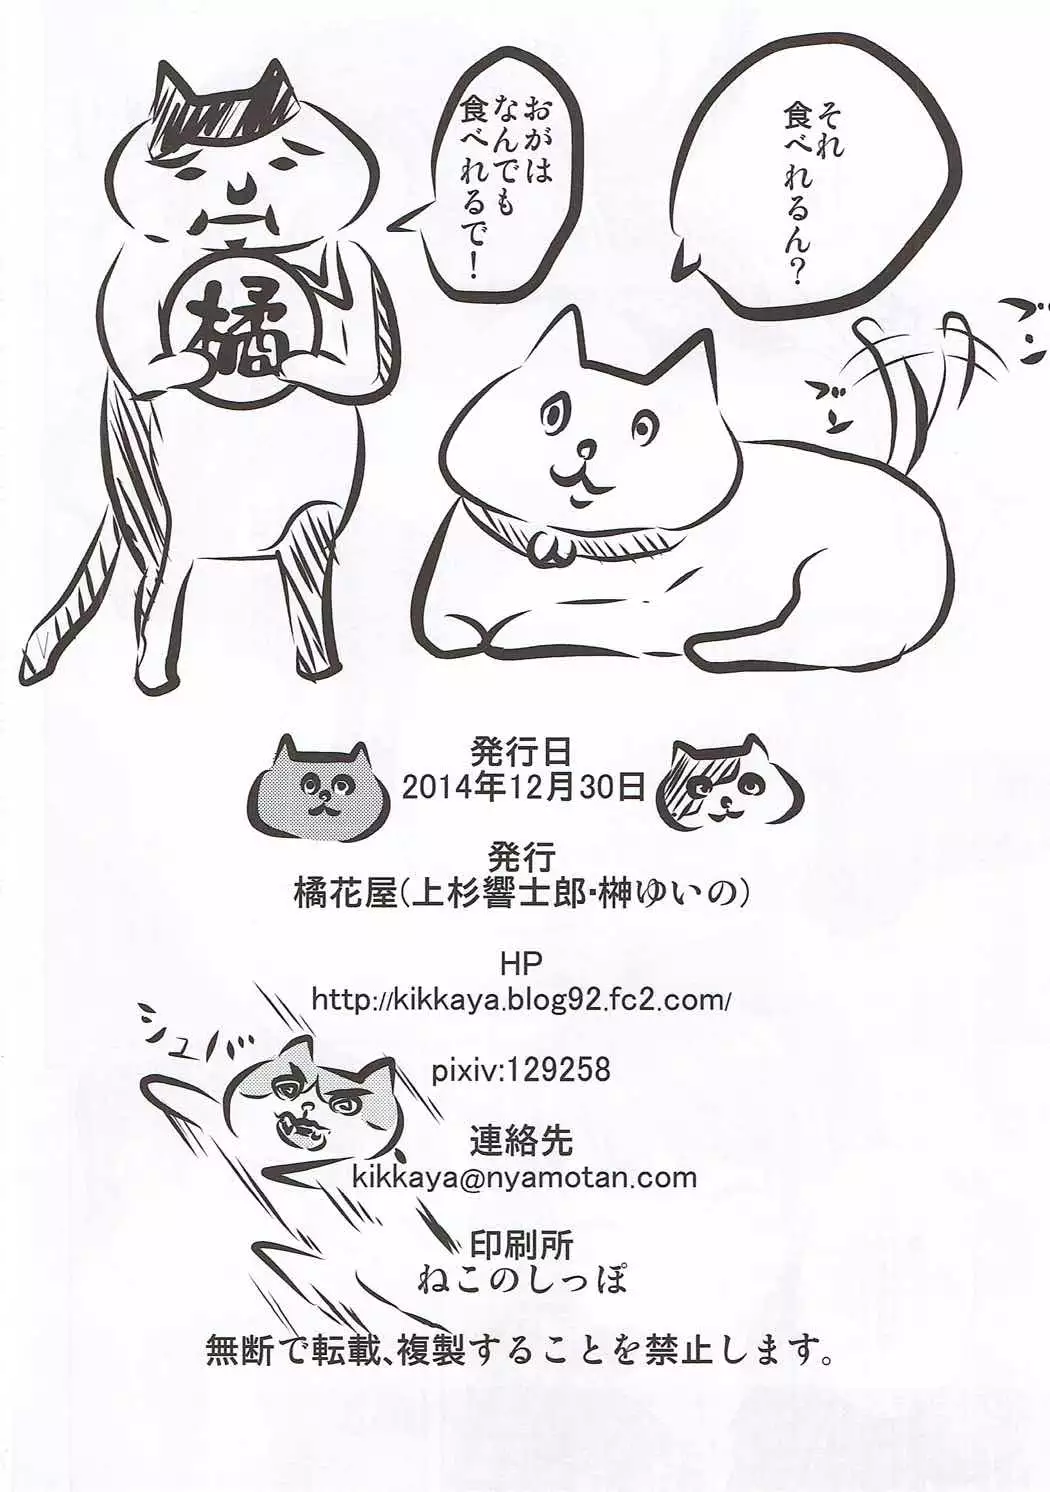 それ
食べれるん?
おがは
なんでも
食べれるで!
橘
ブ
ン
ブ
ン
発行日
2014年12月30日
発行
橘花屋(上杉響士郎・榊ゆいの)
HP
http://kikkaya.blog92.fc2.com/
シュバ
pixiv:129258
連絡先
kikkaya@nyamotan.com
印刷所
ねこのしっぽ
無断で転載、複製することを禁止します。